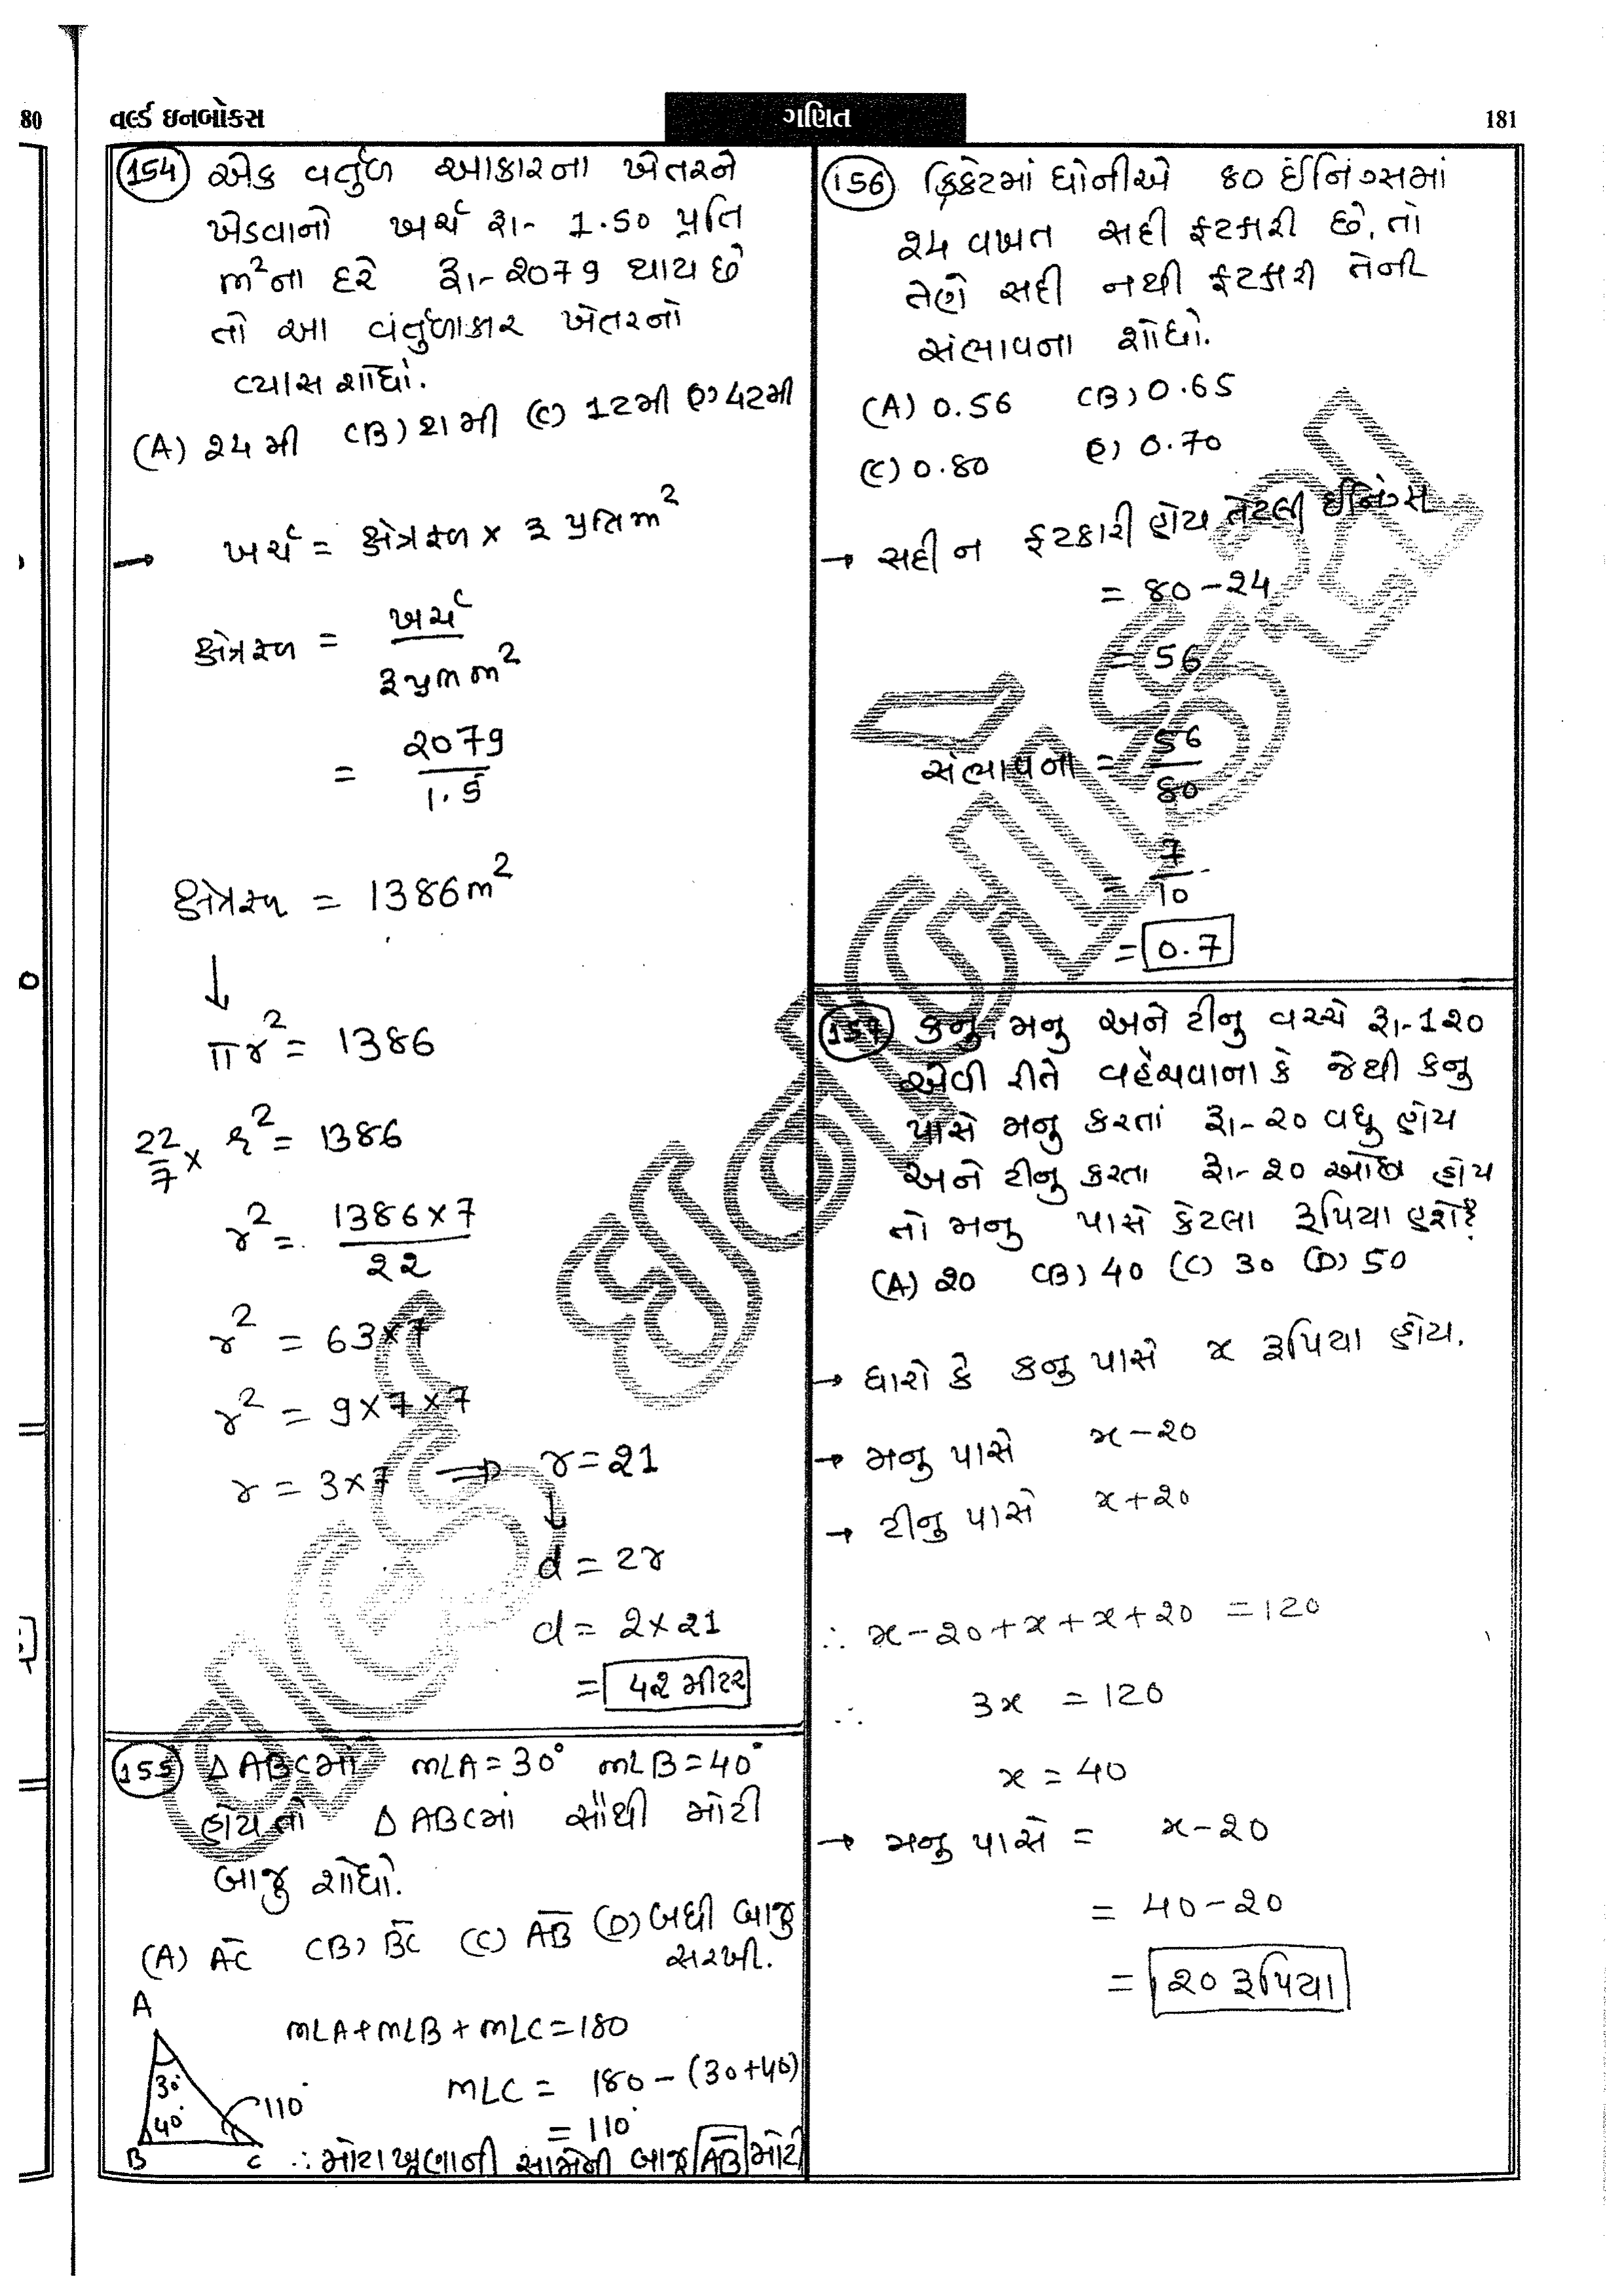 80
વર્લ્ડ ઇનબોક્સ
ગણિત
181
154 એક વર્તુળ આકારના ખેતરને
ખેડવાનો ખર્ચ રૂા- 1.50 પ્રતિ
m²ના દરે રૂા-૨079 થાય છે
તો આ વર્તુળાકાર ખેતરનો
વ્યાસ શોધો.
(A) ૨4 મી (B) ૨1 મી (C) 12મી (D) 42મી
→ ખર્ચ = ક્ષેત્રફળ × રૂ પ્રતિ m²
ક્ષેત્રફળ = ખર્ચ
રૂ પ્રતિ m²
= ૨079
1.5
ક્ષેત્રફળ = 1386m²
↓
πr² = 1386
22/7 × r² = 1386
r² = 1386×7
૨૨
r² = 63×7
r² = 9×7×7
r = 3×7 ⇒ r = ૨1
↓
d = 2r
d = 2×21
= 4૨ મીટર
155 Δ ABCમાં m∠A=30° m∠B=40°
હોય તો Δ ABCમાં સૌથી મોટી
બાજુ શોધો.
(A) AC (B) BC (C) AB (D) બધી બાજુ
સરખી.
A
m∠A+m∠B+m∠C=180
30°
m∠C = 180-(30+40)
40°
110°
= 110°
B C ∴ મોટા ખૂણાની સામેની બાજુ AB મોટી
156 ક્રિકેટમાં ધોનીએ 80 ઈનિંગ્સમાં
૨4 વખત સદી ફટકારી છે, તો
તેણે સદી નથી ફટકારી તેની
સંભાવના શોધો.
(A) 0.56 (B) 0.65
(C) 0.80 (D) 0.70
→ સદી ન ફટકારી હોય તેટલી ઈનિંગ્સ
= 80-૨4
= 56
સંભાવના = 56
80
= 7
10
= 0.7
157 કનુ, મનુ અને ટીનુ વચ્ચે રૂા-1૨0
એવી રીતે વહેંચવાના કે જેથી કનુ
પાસે મનુ કરતાં રૂા-૨0 વધુ હોય
અને ટીનુ કરતા રૂા-૨0 ઓછા હોય
તો મનુ પાસે કેટલા રૂપિયા હશે?
(A) ૨0 (B) 40 (C) 30 (D) 50
→ ધારો કે કનુ પાસે x રૂપિયા હોય.
→ મનુ પાસે x-૨0
→ ટીનુ પાસે x+૨0
∴ x-૨0+x+x+૨0 = 120
∴ 3x = 120
x = 40
→ મનુ પાસે = x-૨0
= 40-૨0
= ૨0 રૂપિયા